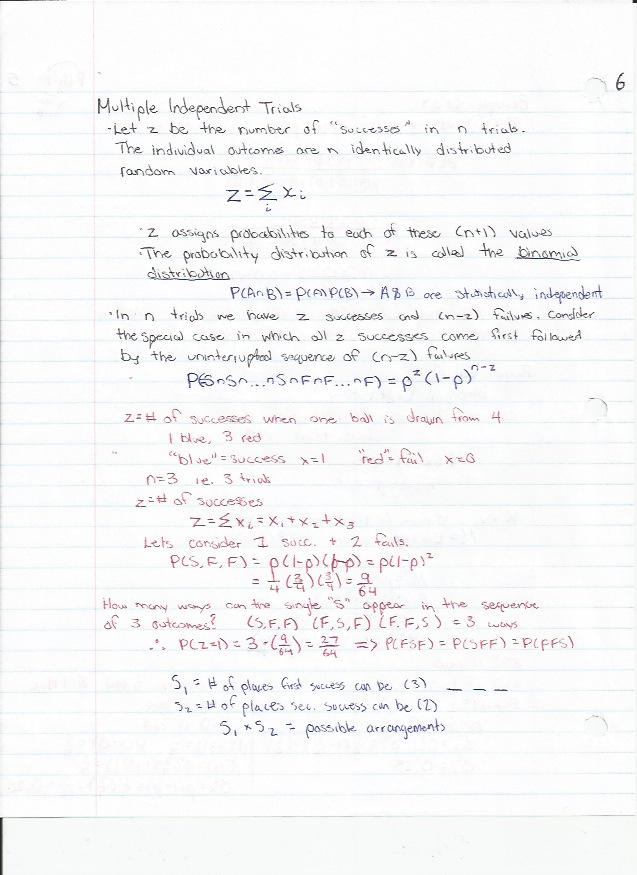 6
Multiple Independent Trials
·Let z be the number of "successes" in n trials.
The individual outcomes are n identically distributed
random variables.
Z = Σ_i x_i
·Z assigns probabilities to each of these (n+1) values
·The probability distribution of z is called the binomial
distribution
P(A∩B) = P(A)P(B) → A & B are statistically independent
·In n trials we have z successes and (n-z) failures. Consider
the special case in which all z successes come first followed
by the uninterrupted sequence of (n-z) failures
P(S∩S∩...∩S∩F∩F...∩F) = p^z (1-p)^{n-z}
z = # of successes when one ball is drawn from 4
1 blue, 3 red
"blue" = success x=1 "red" = fail x=0
n=3 ie. 3 trials
z = # of successes
Z = Σx_i = x_1 + x_2 + x_3
Lets consider 1 succ. + 2 fails.
P(S,F,F) = p(1-p)(1-p) = p(1-p)^2
= 1/4 (3/4)(3/4) = 9/64
How many ways can the single "S" appear in the sequence
of 3 outcomes? (S,F,F) (F,S,F) (F,F,S) = 3 ways
∴ P(Z=1) = 3·(9/64) = 27/64 => P(FSF) = P(SFF) = P(FFS)
S_1 = # of places first success can be (3) _ _ _
S_2 = # of places sec. success can be (2)
S_1 * S_2 = possible arrangements